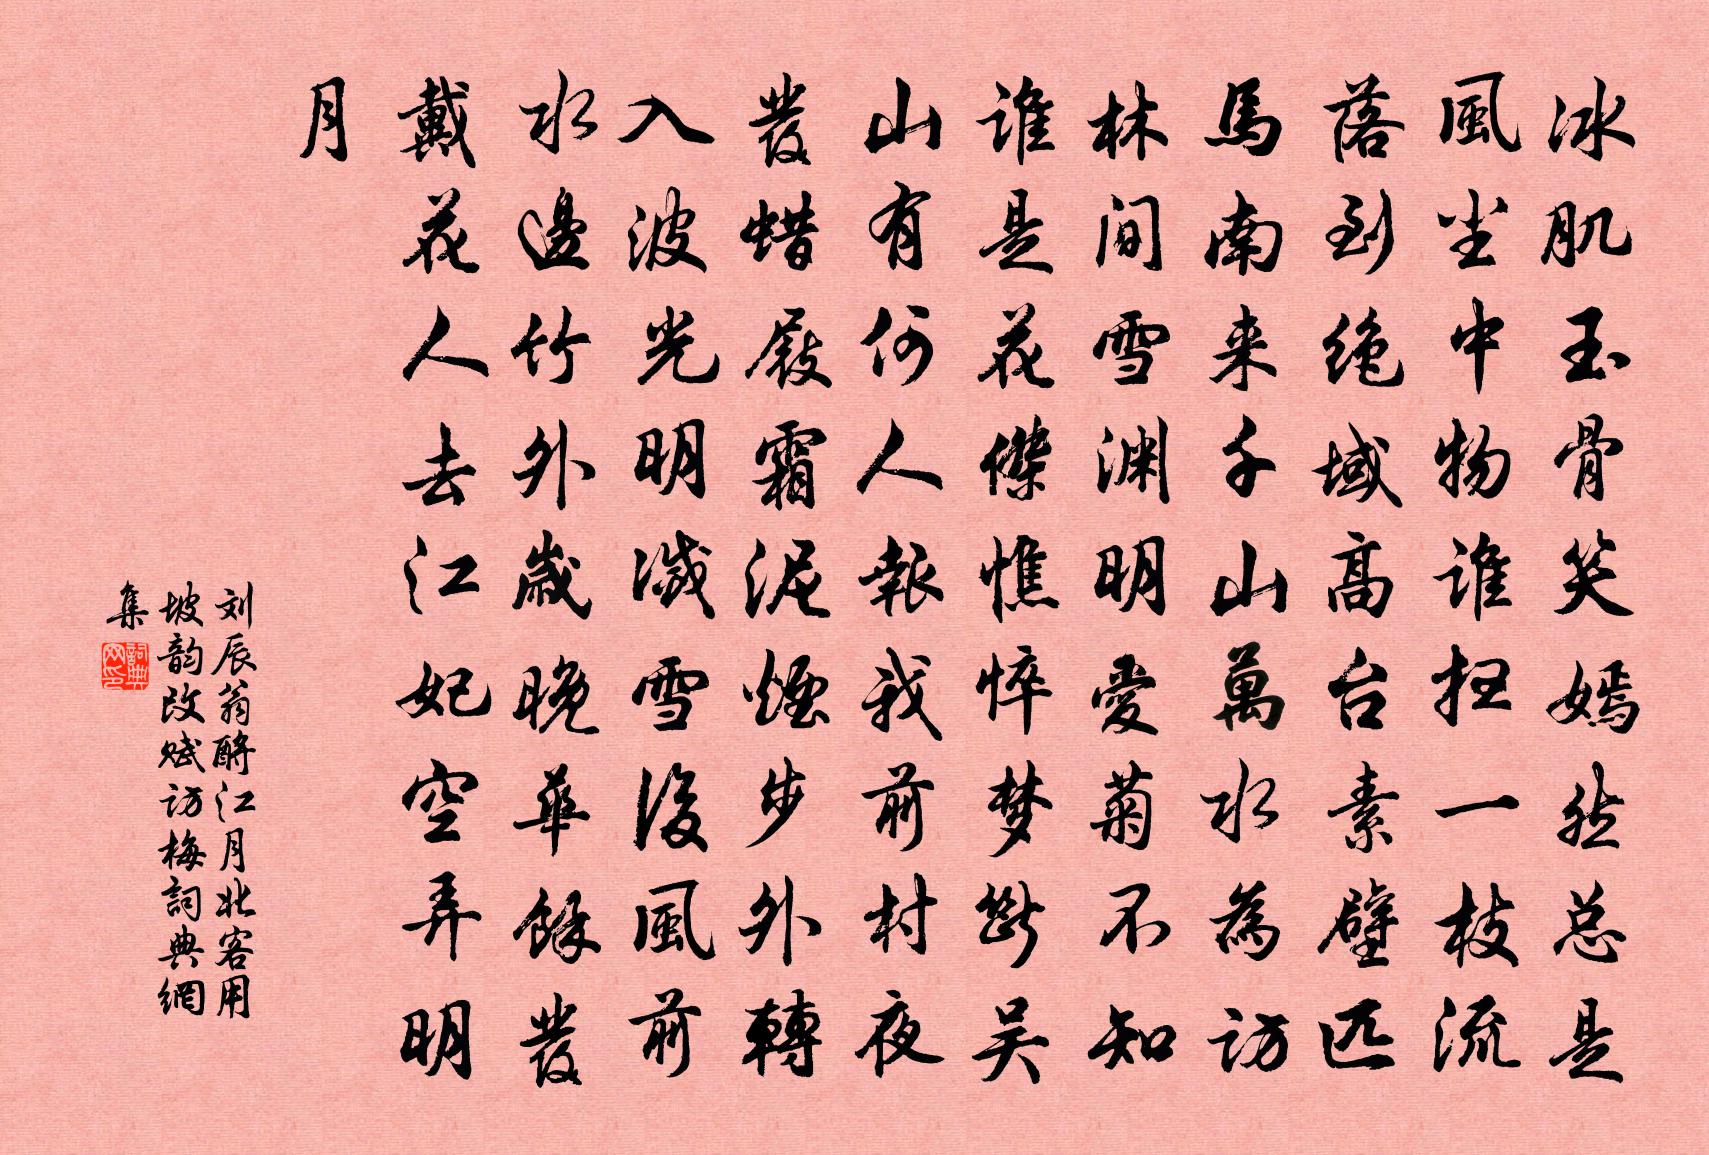 冰肌玉骨笑嫣然总是
風尘中物谁扫一枝流
落到绝域高台素壁匹
馬南来千山萬水為访
林间雪渊明爱菊不知
谁是花傑憔悴梦断吴
山有何人報我前村夜
發蜡屐霜泥煙步外轉
入波光明滅雪後風前
水邊竹外歲晚華餘發
戴花人去江妃空弄明
月
刘辰翁酹江月北客用
坡韵改赋访梅詞典網
集
詞典
网印